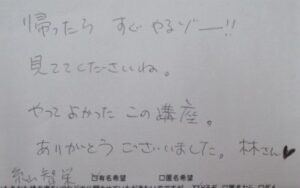 帰ったら すぐ やるゾー!!
見ててくださいね。
やってよかった この講座。
ありがとう ございました。 林さん♥
☑有名希望 □匿名希望